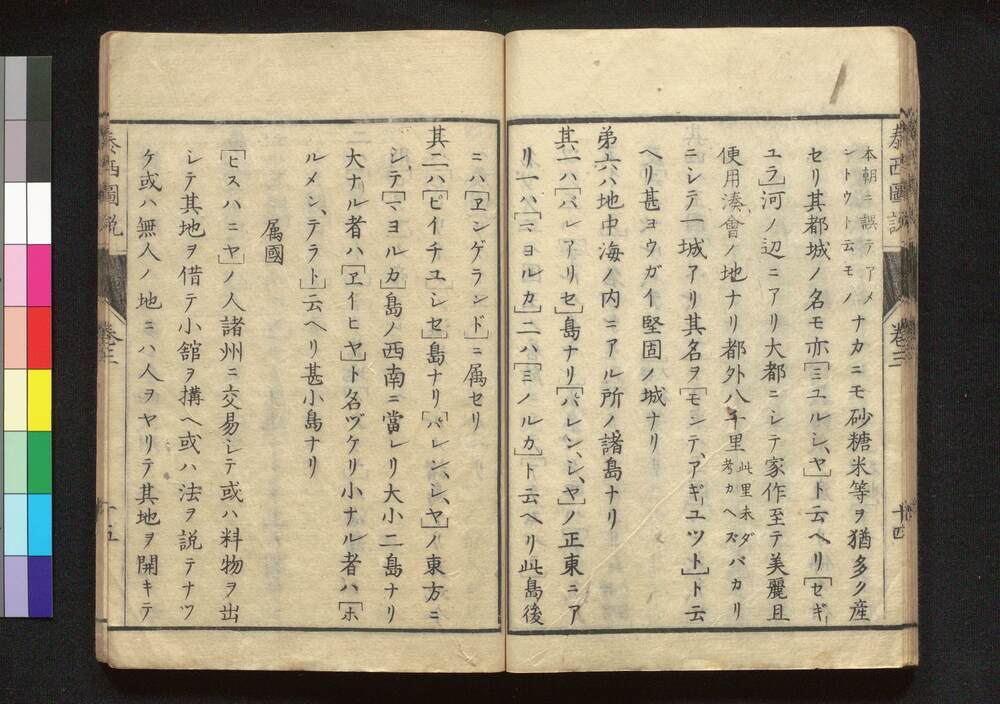 泰西圖說
卷三
十四
本朝ニ誤テアメ
ントウト云モノ
ナカニモ砂糖米等ヲ猶多ク産
セリ其都城ノ名モ亦[ミユルシ、ヤ]ト云ヘリ[セギー
ユラ]河ノ辺ニアリ大都ニシテ家作至テ美麗且
便用湊會ノ地ナリ都外八千里
此里未ダ
考カヘズ
バカリ
ニシテ一城アリ其名ヲ[モンテ、アギーユツト]ト云
ヘリ甚ヨウガイ堅固ノ城ナリ
第六ハ地中海ノ内ニアル所ノ諸島ナリ
其一ハ[バレアリセ]島ナリ[バレンシ、ヤ]ノ正東ニア
リ一ハ[マヨルカ]二ハ[ミノルカ]ト云ヘリ此島後
ニハ[ヱンゲランド]ニ属セリ
其二ハ[ピイチユシセ]島ナリ[バレンシ、ヤ]ノ東方ニ
シテ[マヨルカ]島ノ西南ニ當レリ大小二島ナリ
大ナル者ハ[ヱイヒヤ]ト名ヅケリ小ナル者ハ[ホ
ルメンテラト]云ヘリ甚小島ナリ
属國
[ヒスハニヤ]ノ人諸州ニ交易シテ或ハ料物ヲ出
シテ其地ヲ借テ小舘ヲ搆ヘ或ハ法ヲ説テナツ
ケ或ハ無人ノ地ニハ人ヲヤリテ其地ヲ開キテ
泰西圖說
卷三
十五